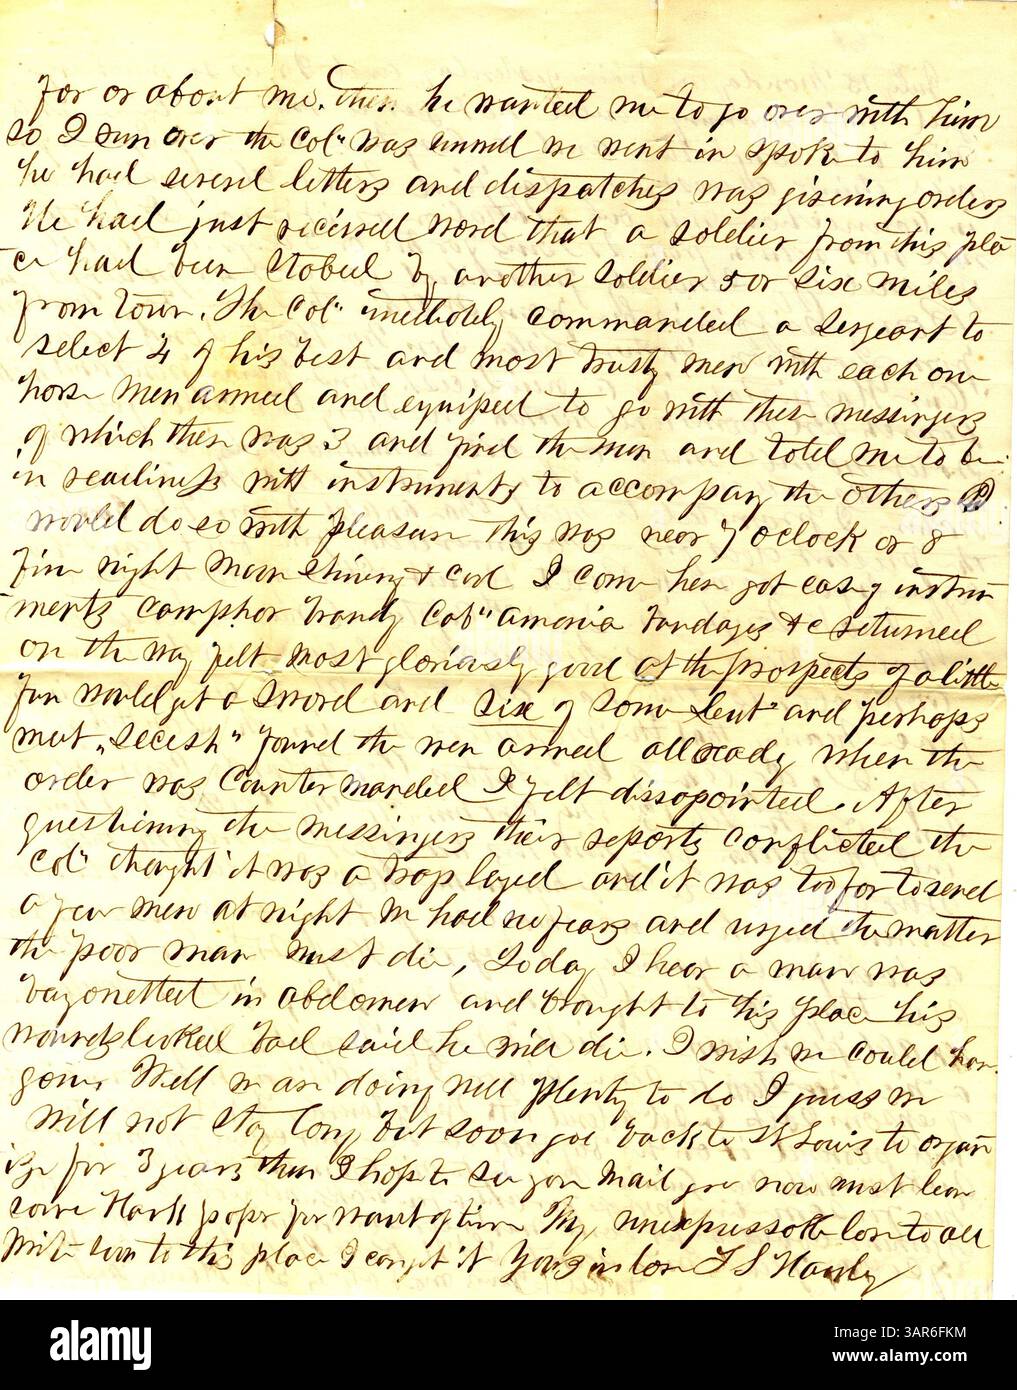 for or about me. then he wanted me to go over with him
so I run over the Col" was unwell we went in spoke to him
he had several letters and dispatches was giving orders
He had just received word that a soldier from this pla
ce had been stobed by another soldier 5 or six miles
from town. The Col" imediotely commanded a sergeant to
select 4 of his best and most trusty men with each one
horse men armed and equiped to go with these messingers
of which there was 3 and find the man and told me to be
in readiness with instruments to accompany the others I
would do so with pleasure this was near 7 oclock or 8
fine night moon shining & cool I come here got case of instru
ments camphor brandy amonia bandages &c returned
on the way felt most gloriously good at the prospects of a little
fun would get a sword and six of some and perhaps
meet "secesh" found the men armed allready when the
order was counter manded I felt dissopointed. After
questioning the messingers their reports conflicted the
Col" thought it was a trap layed and it was too far to send
a few men at night we had no fears and urged the matter
the poor man must die, Today I hear a man was
bayonetted in abdomen and brought to this place his
wounds looked bad said he will die. I wish we could have
gone. Well we are doing well plenty to do I guess we
will not stay long but soon goe back to St Louis to organ
ize for 3 years then I hope to see you Mail goe now must leave
some blank paper for want of time My unexpressoble love to all
Write soon to this place I can get it Yours in love
alamy
Image ID: 3AR6FKM
www.alamy.com